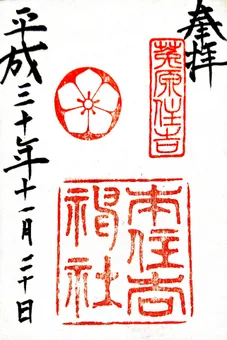 奉拝
菟原住吉
本住吉
神社
平成三十年十一月二十日